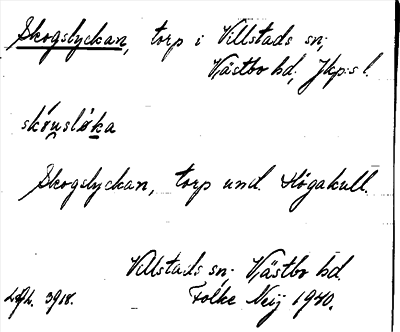 Skogslyckan, torp i Villstads sn;
Västbo hd; Jkp:s l.
Skogslyckan, torp und. Högakull.
Villstads sn. Västbo hd.
Folke Neij 1940.